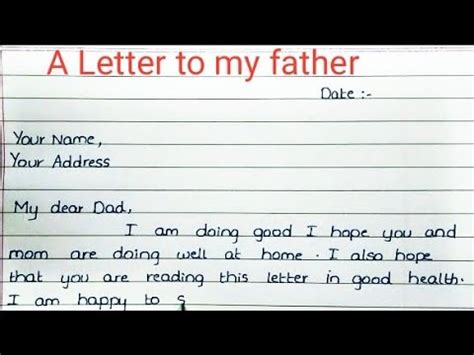 A Letter to my father
Date :-
Your Name,
Your Address
My dear Dad,
I am doing good I hope you and
mom are doing well at home . I also hope
that you are reading this letter in good health.
I am happy to s